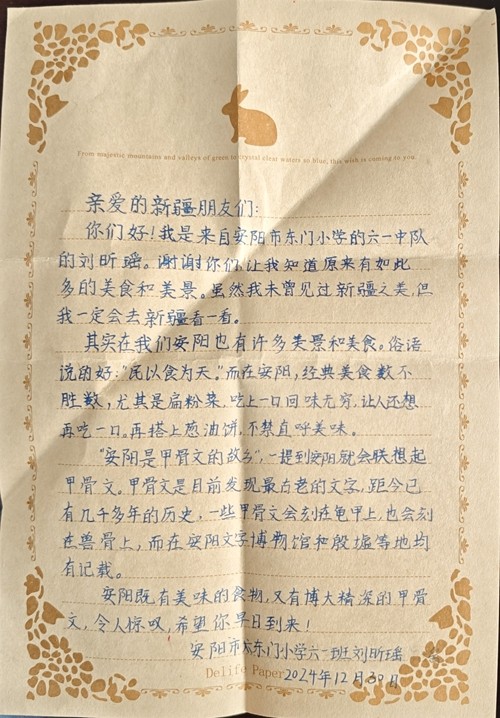 From majestic mountains and valleys of green to crystal clear waters so blue, this wish is coming to you
亲爱的新疆朋友们:
你们好!我是来自安阳市东门小学的六一中队
的刘昕瑶。谢谢你们让我知道原来有如此
多的美食和美景。虽然我未曾见过新疆之美,但
我一定会去新疆看一看。
其实在我们安阳也有许多美景和美食。俗语
说的好:"民以食为天。"而在安阳,经典美食数不
胜数,尤其是扁粉菜,吃上一口回味无穷,让人还想
再吃一口。再搭上葱油饼,不禁直呼美味。
"安阳是甲骨文的故乡",一提到安阳就会联想起
甲骨文。甲骨文是目前发现最古老的文字,距今已
有几千多年的历史,一些甲骨文会刻在龟甲上,也会刻
在兽骨上,而在安阳文字博物馆和殷墟等地均
有记载。
安阳既有美味的食物,又有博大精深的甲骨
文,令人惊叹,希望你早日到来!
安阳市东门小学六一班刘昕瑶
Delife Paper
2024年12月30日